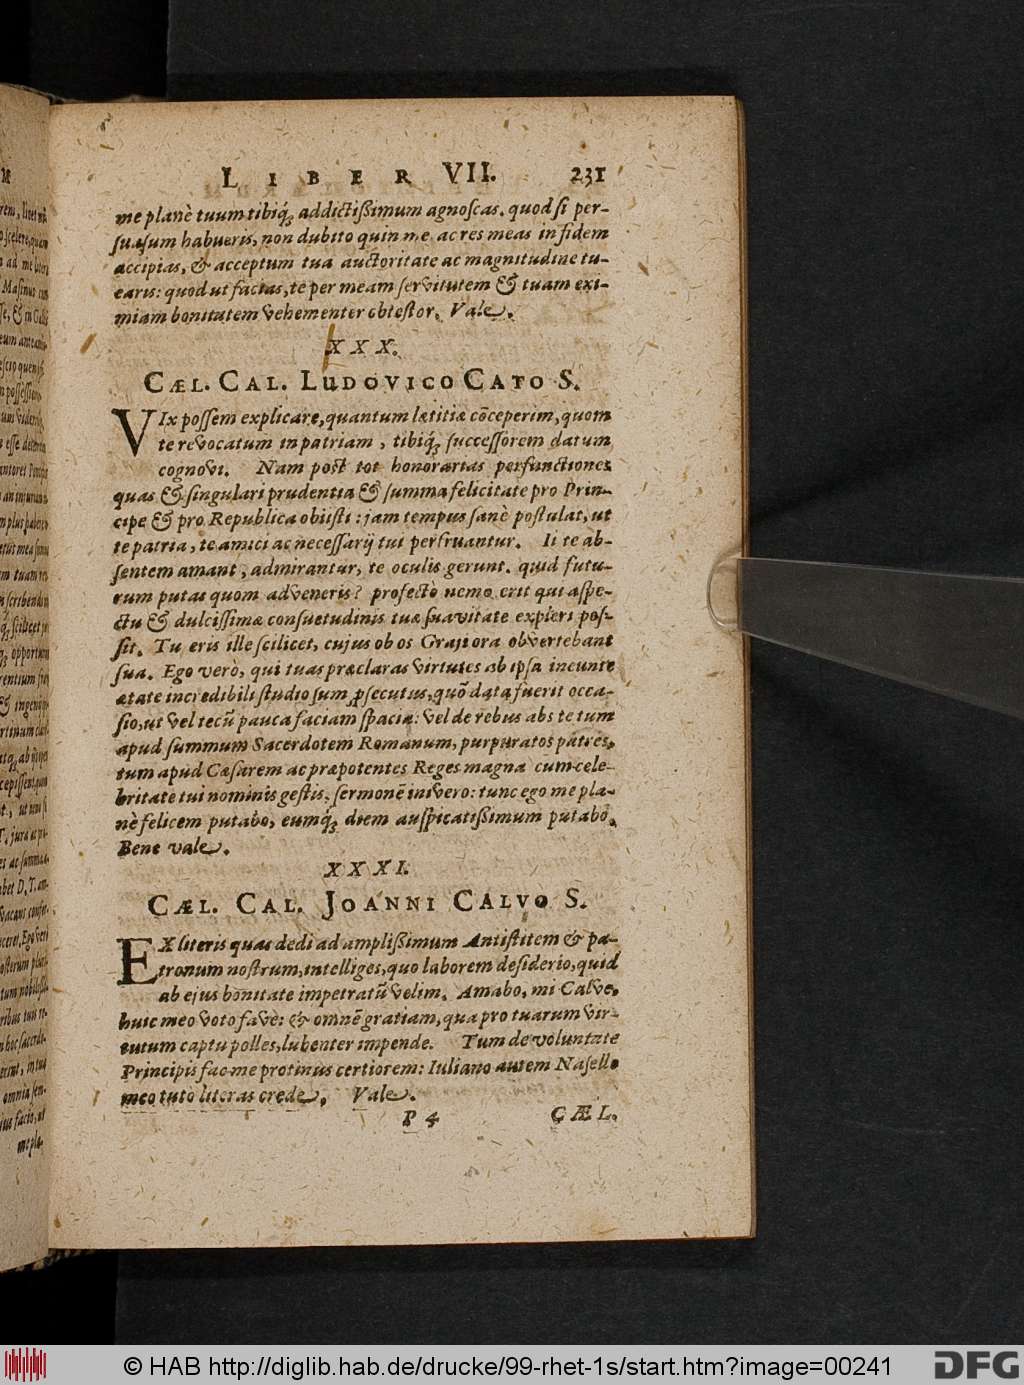 LIBER VII. 231
me planè tuum tibiq́; addictißimum agnoſcas. quod ſi per-
ſuaſum habueris, non dubito quin me ac res meas in fidem
accipias, & acceptum tua auctoritate ac magnitudine tu-
earis: quod ut facias, te per meam ſervitutem & tuam exi-
miam bonitatem vehementer obteſtor. Vale.
XXX.
CÆL. CAL. LUDOVICO CATO S.
VIx poſſem explicare, quantum lætitiæ cōceperim, quom
te revocatum in patriam, tibiq́; ſucceſſorem datum
cognovi. Nam poſt tot honorarias perfunctiones
quas & ſingulari prudentia & ſumma felicitate pro Prin-
cipe & pro Republica obiiſti: jam tempus ſanè poſtulat, ut
te patria, te amici ac neceſſarij tui perfruantur. Ii te ab-
ſentem amant, admirantur, te oculis gerunt. quid futu-
rum putas quom adveneris? profectò nemo erit qui aſpe-
ctu & dulciſſimæ conſuetudinis tuæ ſuavitate expleri poſ-
ſit. Tu eris ille ſcilicet, cujus ob os Graji ora obvertebant
ſua. Ego verò, qui tuas præclaras virtutes ab ipſa ineunte
ætate incredibili ſtudio ſum ꝓſecutus, quō data fuerit occa-
ſio, ut vel tecū pauca faciam ſpacia: vel de rebus abs te tum
apud ſummum Sacerdotem Romanum, purpuratos patres,
tum apud Cæſarem ac præpotentes Reges magna cum cele-
britate tui nominis geſtis, ſermonē inivero: tunc ego me pla-
nè felicem putabo, eumq́; diem auſpicatißimum putabo.
Bene vale.
XXXI.
CÆL. CAL. JOANNI CALVO S.
EX literis quas dedi ad amplißimum Antiſtitem & pa-
tronum noſtrum, intelliges, quo laborem deſiderio, quid
ab ejus bonitate impetratū velim. Amabo, mi Calve,
huic meo voto favè: & omnē gratiam, qua pro tuarum vir-
tutum captu polles, lubenter impende. Tum de voluntate
Principis fac me protinus certiorem: Iuliano autem Naſello
meo tuto literas crede. Vale.
P 4 CÆL.
© HAB http://diglib.hab.de/drucke/99-rhet-1s/start.htm?image=00241
DFG